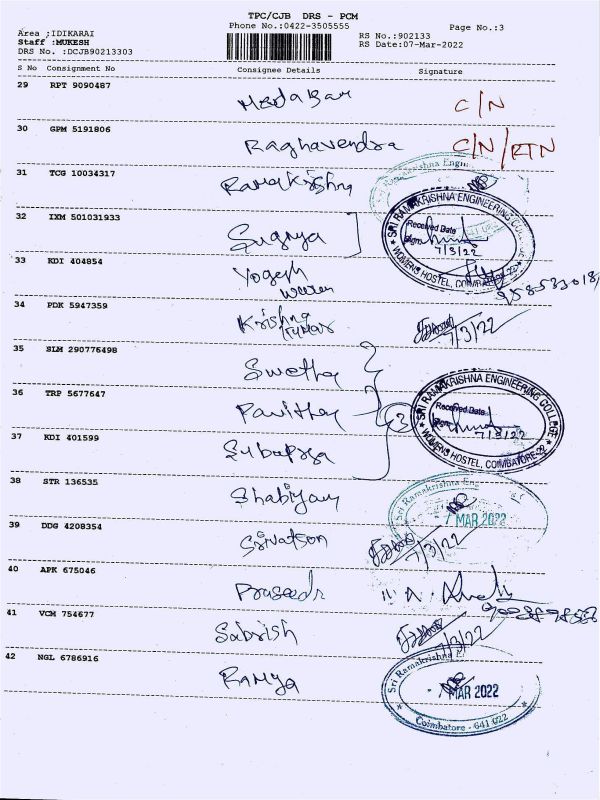 TPC/CJB DRS - PCM
Phone No.:0422-3505555
Page No.:3
Area ;IDIKARAI
Staff :MUKESH
DRS No. :DCJB90213303
RS No.:902133
RS Date:07-Mar-2022
S No Consignment No Consignee Details Signature
29 RPT 9090487 C/N
30 GPM 5191806 Raghavendra C/N/RTN
31 TCG 10034317 Ramakrishna
32 IXM 501031933 Suganya
SRI RAMAKRISHNA ENGINEERING COLLEGE
Received Date
Sign
7/3/22
WOMENS HOSTEL, COIMBATORE-22
33 KDI 404854 Yogesh
34 PDK 5947359 Krishna Kumar 7/3/22
35 SLM 290776498 Swetha
36 TRP 5677647 Pavithra
3
SRI RAMAKRISHNA ENGINEERING COLLEGE
Received Date
Sign
7/3/22
WOMENS HOSTEL, COIMBATORE-22
37 KDI 401599
38 STR 136535
Sri Ramakrishna Eng
7 MAR 2022
39 DDG 4208354 Srivatson 7/3/22
40 APK 675046
41 VCM 754677 Sabrish 7/3/22
42 NGL 6786916 Ramya
Sri Ramakrishna E
MAR 2022
Coimbatore - 641 022